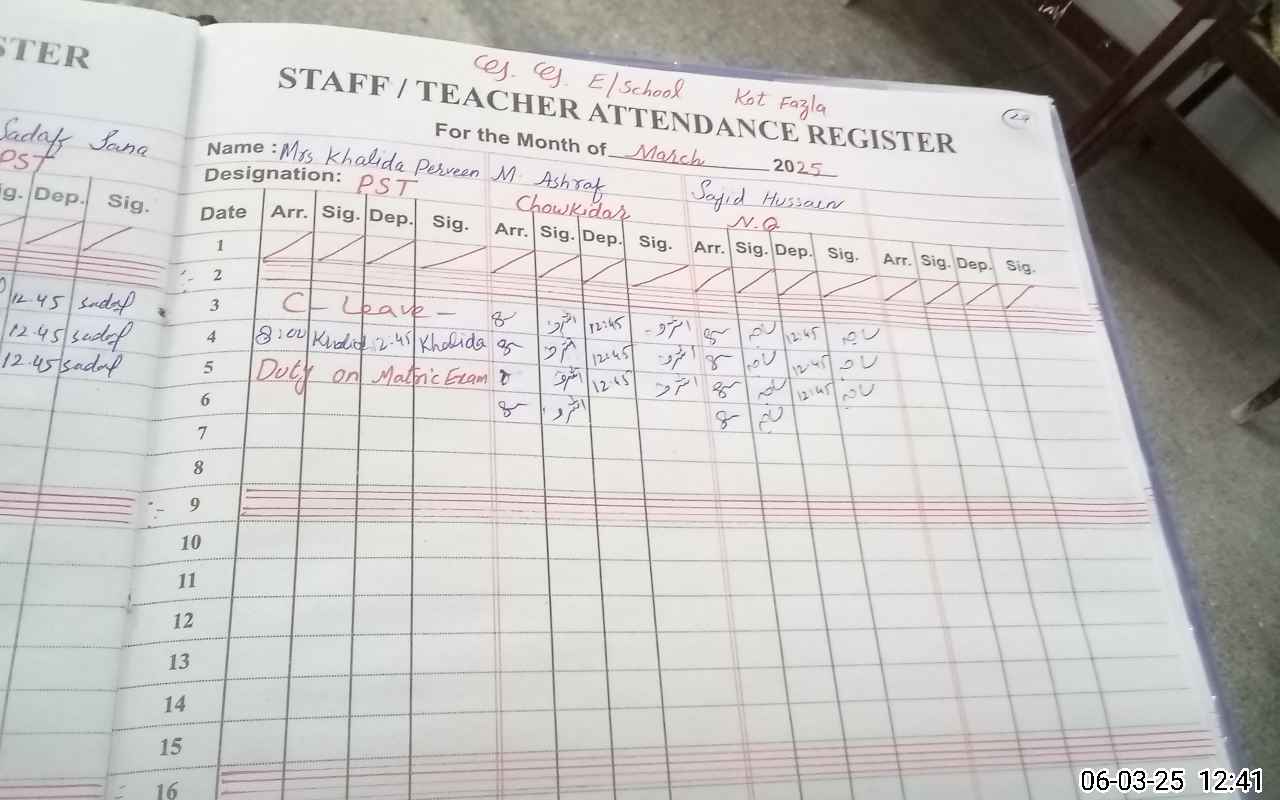 STER
Sadaf Sana
PST
ig. Dep. Sig.
12.45 sadaf
12.45 sadaf
12.45 sadaf
E/School Kot Fazla
STAFF / TEACHER ATTENDANCE REGISTER
27
For the Month of March 2025
Name : Mrs Khalida Perveen M. Ashraf Sajid Hussain
Designation: PST Chowkidar N.Q
Date Arr. Sig. Dep. Sig. Arr. Sig. Dep. Sig. Arr. Sig. Dep. Sig. Arr. Sig. Dep. Sig.
1
2
3 C - Leave - 8 اشرف 12:45 اشرف 8 12:45
4 8:00 Khalida 12:45 Khalida 8 اشرف 12:45 اشرف 8 12:45
5 Duty on Matric Exam 8 اشرف 12:45 اشرف 8 12:45
6 8 اشرف 8
7
8
9
10
11
12
13
14
15
16
06-03-25 12:41